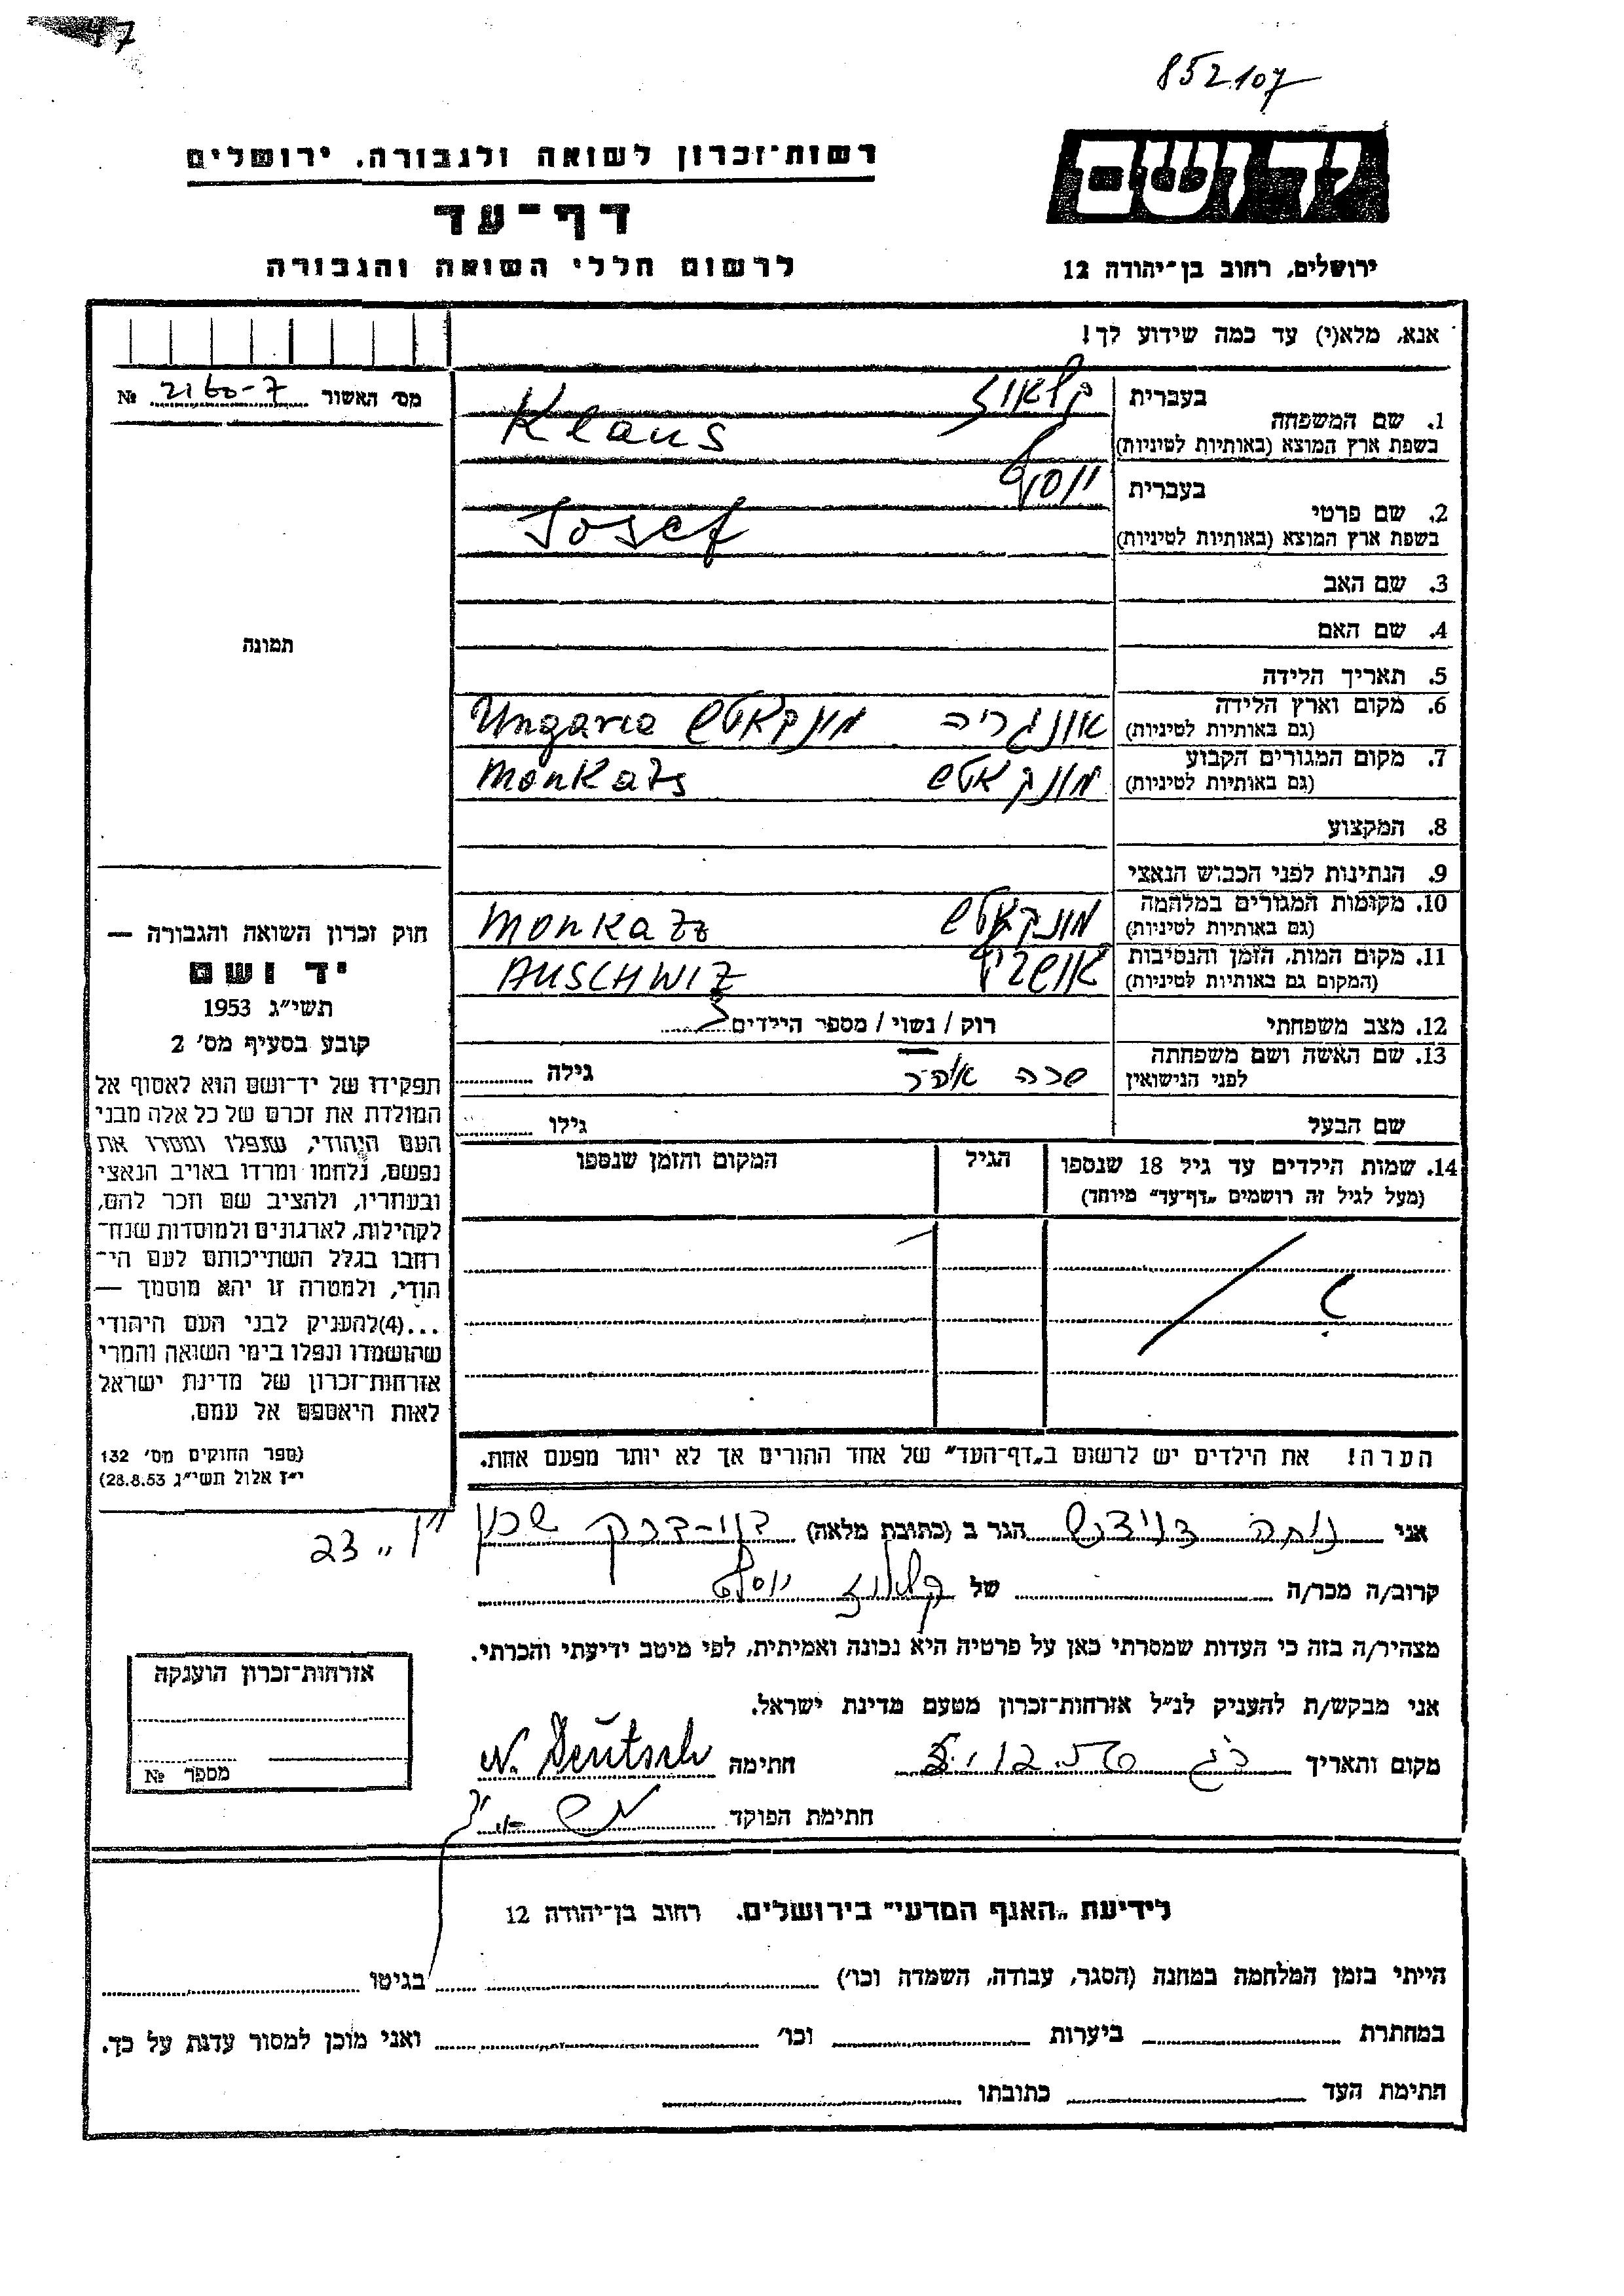 47
852107
רשות־זכרון לשואה ולגבורה, ירושלים
יד ושם
דף־עד
לרשום חללי השואה והגבורה
ירושלים, רחוב בן־יהודה 12
אנא, מלא(י) עד כמה שידוע לך!
מס׳ האשור № 2160-7
בעברית קלאוז
1. שם המשפחה
בשפת ארץ המוצא (באותיות לטיניות) Klaus
בעברית יוסף
2. שם פרטי
בשפת ארץ המוצא (באותיות לטיניות) Josef
3. שם האב
4. שם האם
תמונה
5. תאריך הלידה
6. מקום וארץ הלידה
(גם באותיות לטיניות) אונגריה מונקאטש Ungarie
7. מקום המגורים הקבוע
(גם באותיות לטיניות) מונקאטש Monkats
8. המקצוע
9. הנתינות לפני הכבוש הנאצי
10. מקומות המגורים במלחמה
(גם באותיות לטיניות) מונקאטש Monkazz
11. מקום המות, הזמן והנסיבות
(המקום גם באותיות לטיניות) אושביץ AUSCHWIZ
12. מצב משפחתי רוק / נשוי / מספר הילדים
13. שם האשה ושם משפחתה
לפני הנישואין שרה גילה
שם הבעל גילו
14. שמות הילדים עד גיל 18 שנספו הגיל המקום והזמן שנספו
(מעל לגיל זה רושמים „דף־עד” מיוחד)
הערה! את הילדים יש לרשום ב„דף־העד” של אחד ההורים אך לא יותר מפעם אחת.
חוק זכרון השואה והגבורה —
יד ושם
תשי״ג 1953
קובע בסעיף מס׳ 2
תפקידו של יד־ושם הוא לאסוף אל
המולדת את זכרם של כל אלה מבני
העם היהודי, שנפלו ומסרו את
נפשם, נלחמו ומרדו באויב הנאצי
ובעוזריו, ולהציב שם וזכר להם,
לקהילות, לארגונים ולמוסדות שנח־
רחבו בגלל השתייכותם לעם הי־
הודי, ולמטרה זו יהא מוסמך —
...(4)להעניק לבני העם היהודי
שהושמדו ונפלו בימי השואה והמרי
אזרחות־זכרון של מדינת ישראל
לאות היאספם אל עמם.
(ספר החוקים מס׳ 132
י״ז אלול תשי״ג 28.8.53)
אני נחה דויטש הגר ב (כתובת מלאה) שכון
23
קרוב/ה מכר/ה של קלאוז יוסף
מצהיר/ה בזה כי העדות שמסרתי כאן על פרטיה היא נכונה ואמיתית, לפי מיטב ידיעתי והכרתי.
אני מבקש/ת להעניק לנ״ל אזרחות־זכרון מטעם מדינת ישראל.
מקום ותאריך חתימה N. Deutsch
חתימת הפוקד
אזרחות־זכרון הוענקה
מספר №
לידיעת „האגף המדעי” בירושלים. רחוב בן־יהודה 12
הייתי בזמן המלחמה במחנה (הסגר, עבודה, השמדה וכו׳) בגיטו
במחתרת ביערות וכו׳ ואני מוכן למסור עדות על כך.
חתימת העד כתובתו